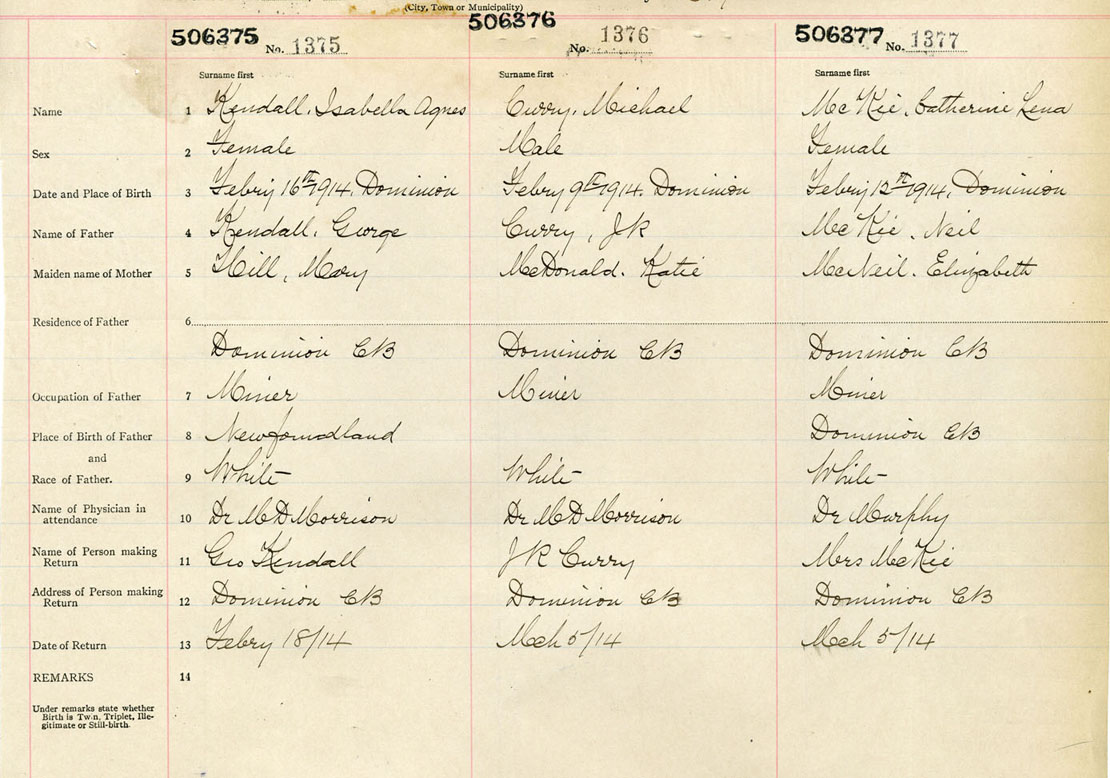 (City, Town or Municipality)
506375 No. 1375 506376 No. 1376 506377 No. 1377
Surname first Surname first Surname first
Name 1 Kendall, Isabella Agnes Curry, Michael McKie, Catherine Lena
Sex 2 Female Male Female
Date and Place of Birth 3 Febry 16th 1914, Dominion Febry 9th 1914, Dominion Febry 12th 1914, Dominion
Name of Father 4 Kendall, George Curry, JR McKie, Neil
Maiden name of Mother 5 Hill, Mary McDonald, Katie McNeil, Elizabeth
Residence of Father 6
Dominion CB Dominion CB Dominion CB
Occupation of Father 7 Miner Miner Miner
Place of Birth of Father 8 Newfomdland Dominion CB
and
Race of Father. 9 White White White
Name of Physician in
attendance 10 Dr M D Morrison Dr M D Morrison Dr Murphy
Name of Person making
Return 11 Geo Kendall J R Curry Mrs McKie
Address of Person making
Return 12 Dominion CB Dominion CB Dominion CB
Date of Return 13 Febry 18/14 Mch 5/14 Mch 5/14
REMARKS 14
Under remarks state whether
Birth is Twin, Triplet, Ille-
gitimate or Still-birth.